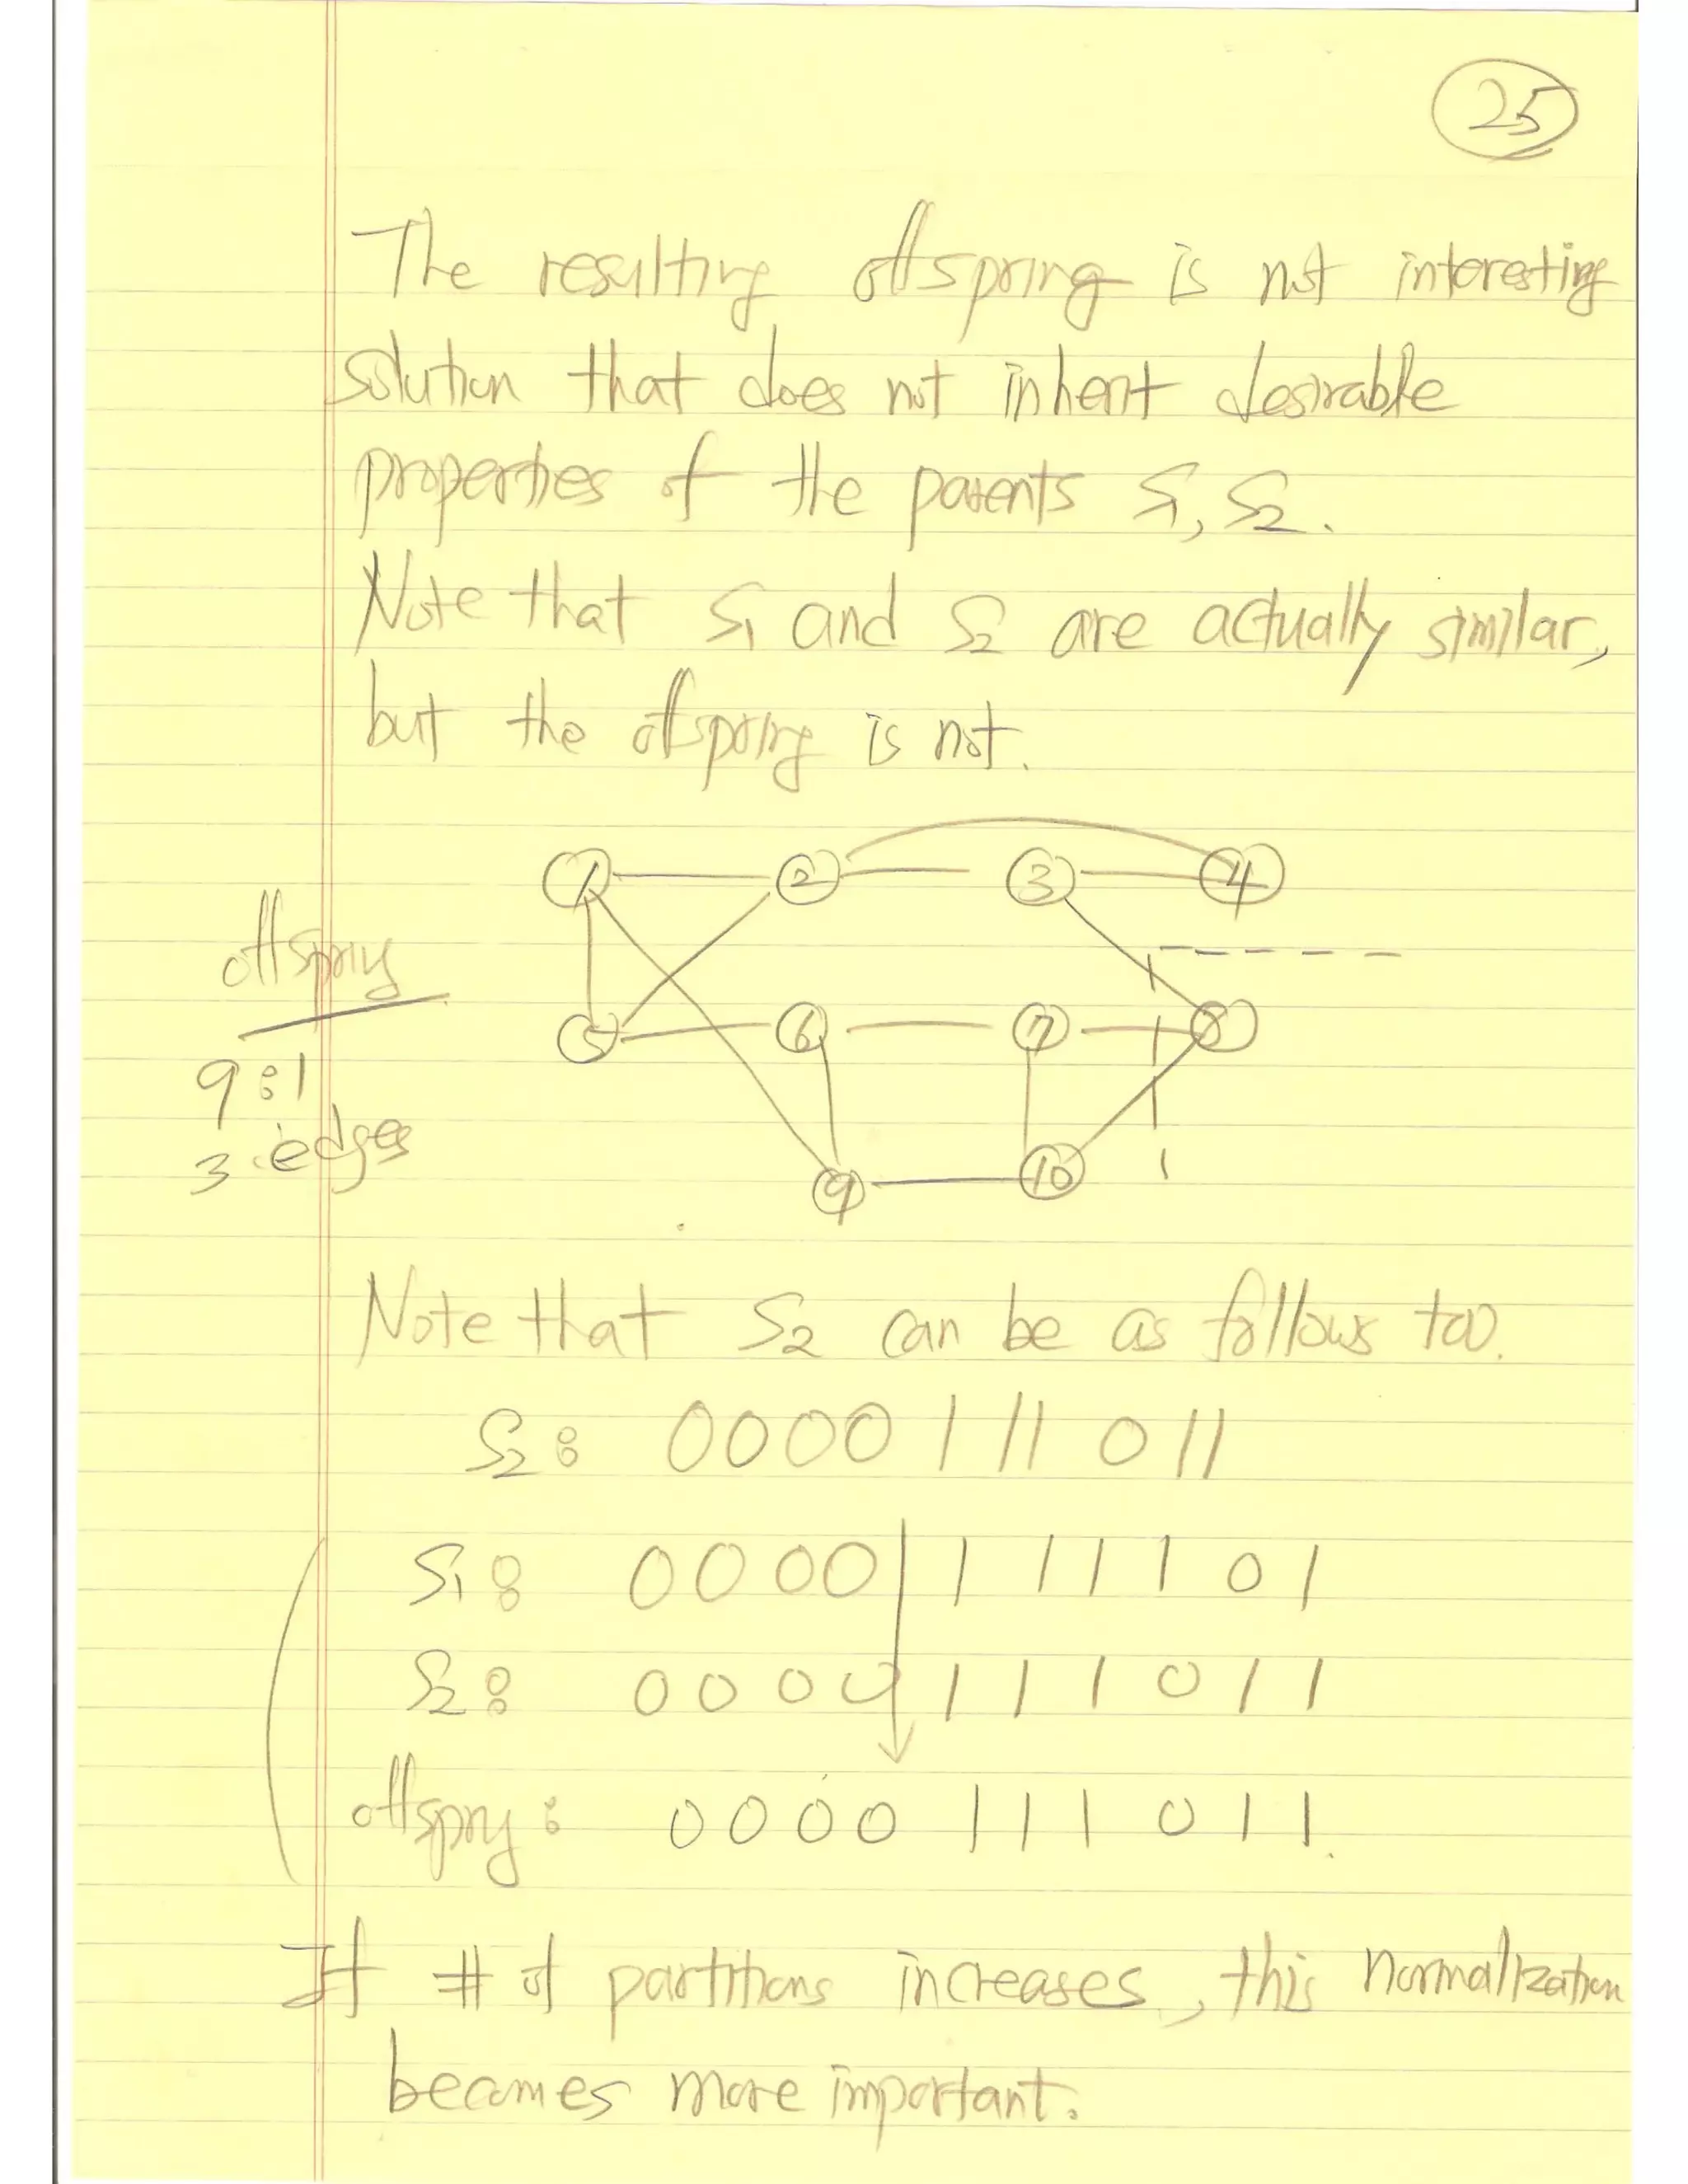 25
The resulting offspring is not interesting
solution that does not inherit desirable
properties of the parents S1, S2.
Note that S1 and S2 are actually similar,
but the offspring is not.
1 2 3 4
offspring
5 6 7 8
9:1
3 edges
9 10
Note that S2 can be as follows too.
S2: 0000111011
S1: 0000111101
S2: 0000111011
offspring: 0000111011.
If # of partitions increases, this normalization
becomes more important.